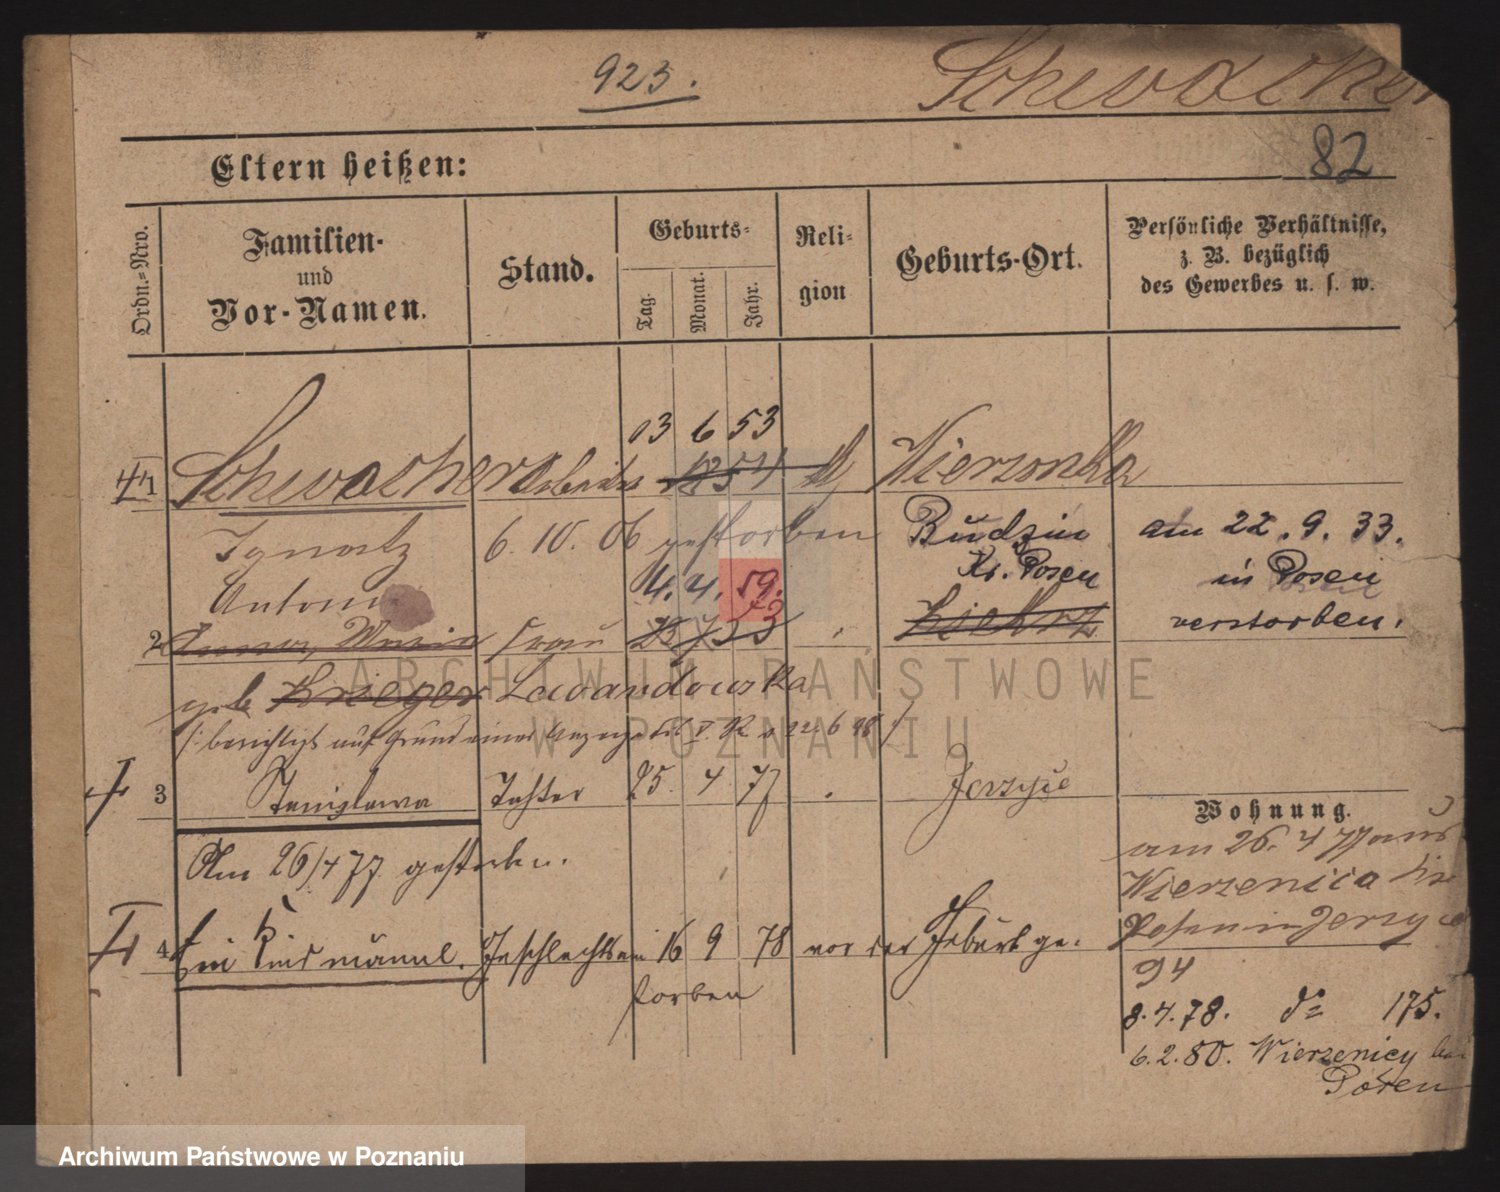 923.
Schwacher
82
Eltern heißen:
Ordn.-Nro.
Familien-
und
Vor-Namen.
Stand.
Geburts-
Tag.
Monat.
Jahr.
Reli-
gion
Geburts-Ort.
Persönliche Verhältnisse,
z. B. bezüglich
des Gewerbes u. s. w.
3 6 53
1 Schwacher 54 Wierzonka
Ignatz 6. 10. 06 gestorben Budzin am 22.9.33.
Kr. Posen in Posen
Antonie 4. 4. 59. verstorben.
2 Maria Frau
geb Krieger Lewandowska
berichtigt auf Grund einer Anzeige 22.6.98
3 Stanislawa Tochter 25. 4 77 Jerzyce
Wohnung.
Am 26/4 77 gestorben. am 26. 4 77 aus
Wierzenica
Posen in Jerzyce
4 Ein Kind männl. Geschlechts ein 16 9 78 vor der Geburt ge.
storben
94
8.4.78. do 175.
6.2.80. Wierzenicy bei
Posen
ARCHIWUM PAŃSTWOWE
W POZNANIU
Archiwum Państwowe w Poznaniu